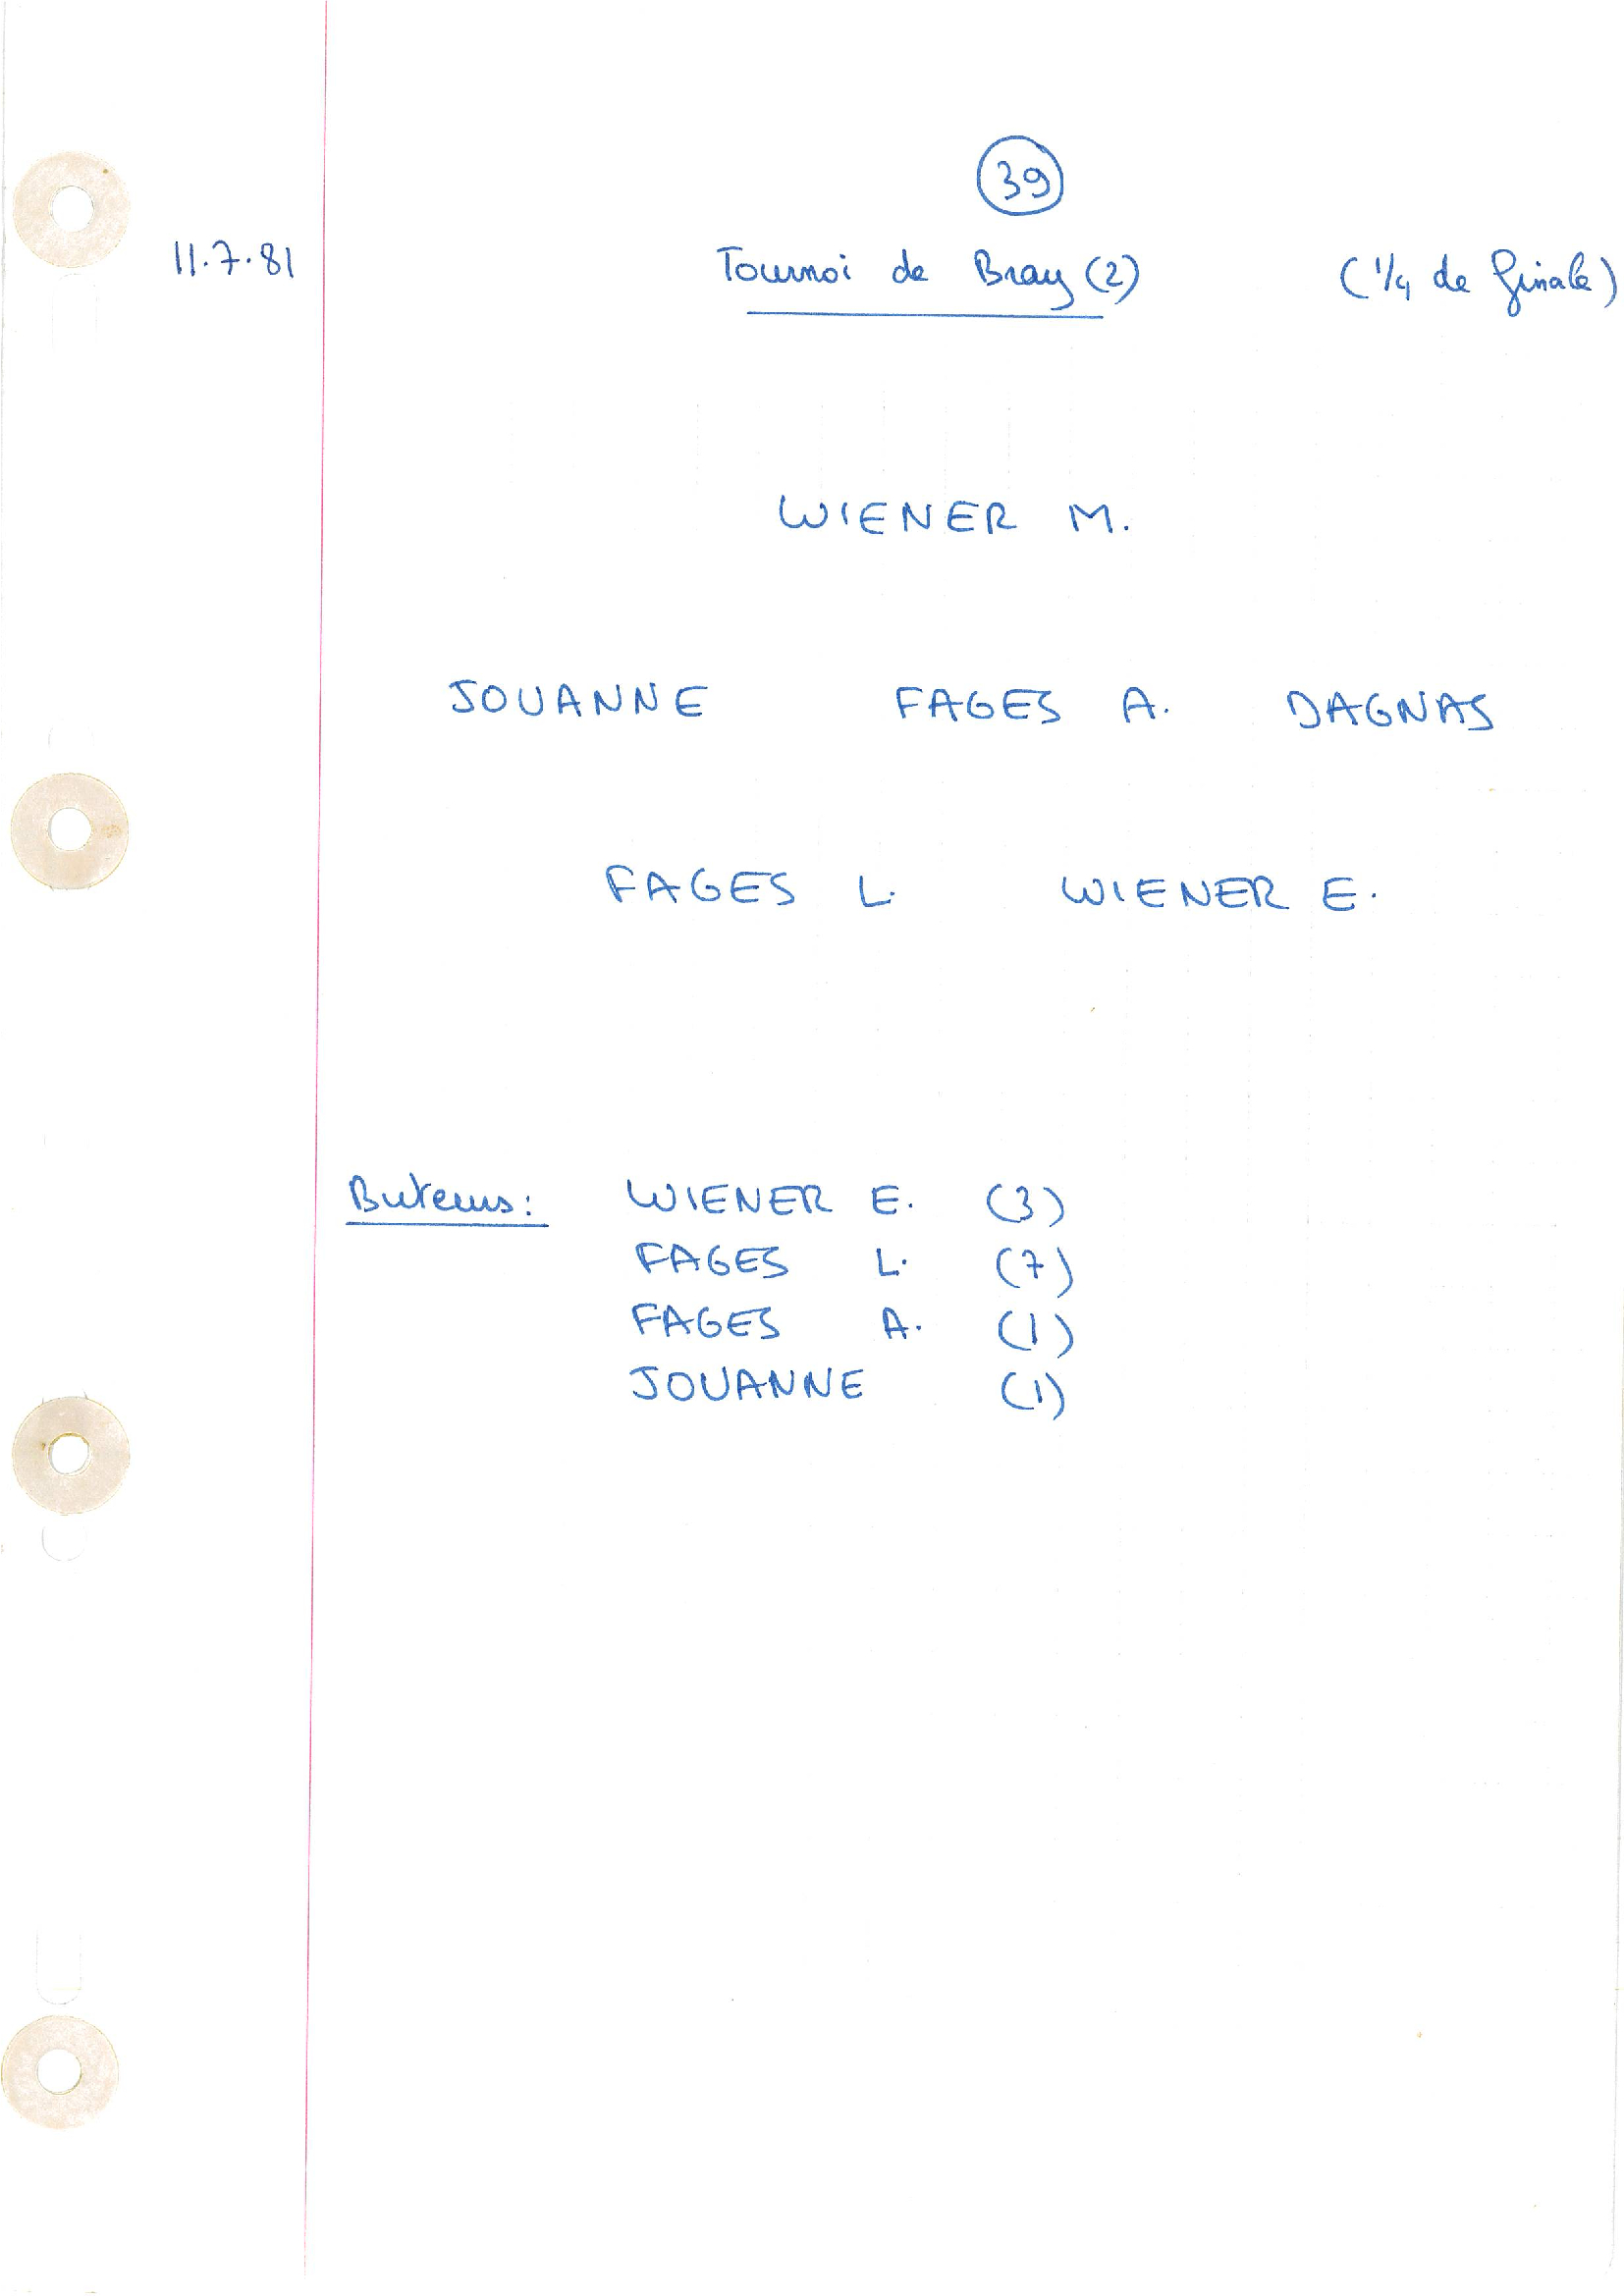 39
11.7.81 Tournoi de Bray (2) (1/4 de finale)
WIENER M.
JOUANNE FAGES A. DAGNAS
FAGES L. WIENER E.
Buteurs: WIENER E. (3)
FAGES L. (7)
FAGES A. (1)
JOUANNE (1)